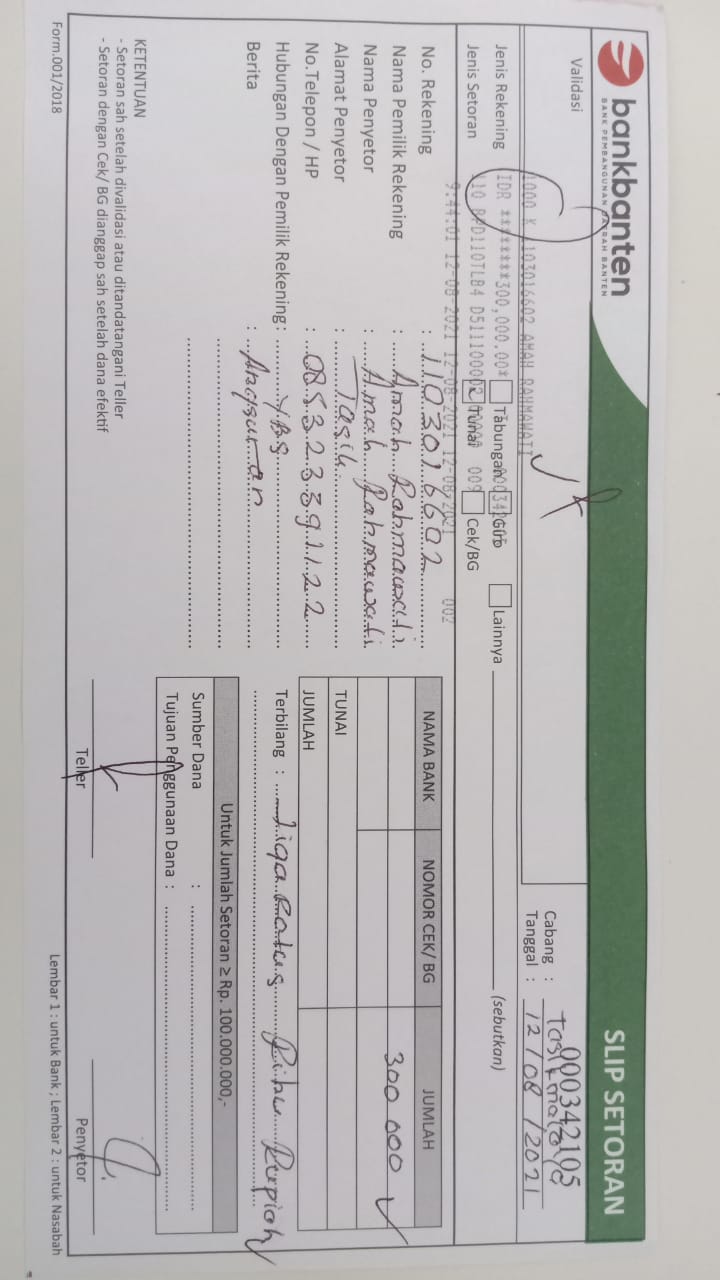 bankbanten
BANK PEMBANGUNAN DAERAH BANTEN
SLIP SETORAN
000342105
Validasi
1000 K 1103016602 AMAH RAHMAWATI
IDR ********300,000.00*
000342105
9:44:01 12-08-2021 12-08-2021 12-08-2021 002
Cabang : Tasikmalaya
Tanggal : 12/08/2021
Jenis Rekening
Tabungan
Giro
Lainnya
(sebutkan)
Jenis Setoran
Tunai
Cek/BG
No. Rekening : 1103016602
Nama Pemilik Rekening : Amah Rahmawati
Nama Penyetor : Amah Rahmawati
Alamat Penyetor : Tasik
No.Telepon / HP : 085323391122
Hubungan Dengan Pemilik Rekening: YBS
Berita : Angsuran
NAMA BANK NOMOR CEK/ BG JUMLAH
300 000
TUNAI
JUMLAH
Terbilang : Tiga Ratus Ribu Rupiah
Untuk Jumlah Setoran ≥ Rp. 100.000.000,-
Sumber Dana :
Tujuan Penggunaan Dana :
KETENTUAN
- Setoran sah setelah divalidasi atau ditandatangani Teller
- Setoran dengan Cek/ BG dianggap sah setelah dana efektif
Teller
Penyetor
Form.001/2018
Lembar 1 : untuk Bank ; Lembar 2 : untuk Nasabah